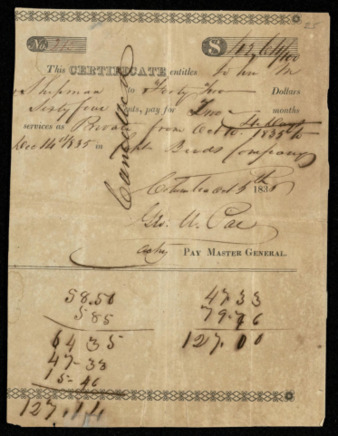 25
No.
$ 42 64/100
This CERTIFICATE entitles John M
Shipman to Forty Two Dollars
Sixty four cents, pay for Two months
4 days
services as Private from Oct 10. 1835 to
Dec 14th 1835 in Capt Birds Company
Cancelled
Columbia Oct 5th 183
Geo. W. Poe
Actg PAY MASTER GENERAL.
58.50 47 33
585 79.76
64 35 127.00
47-33
15-46
127.14